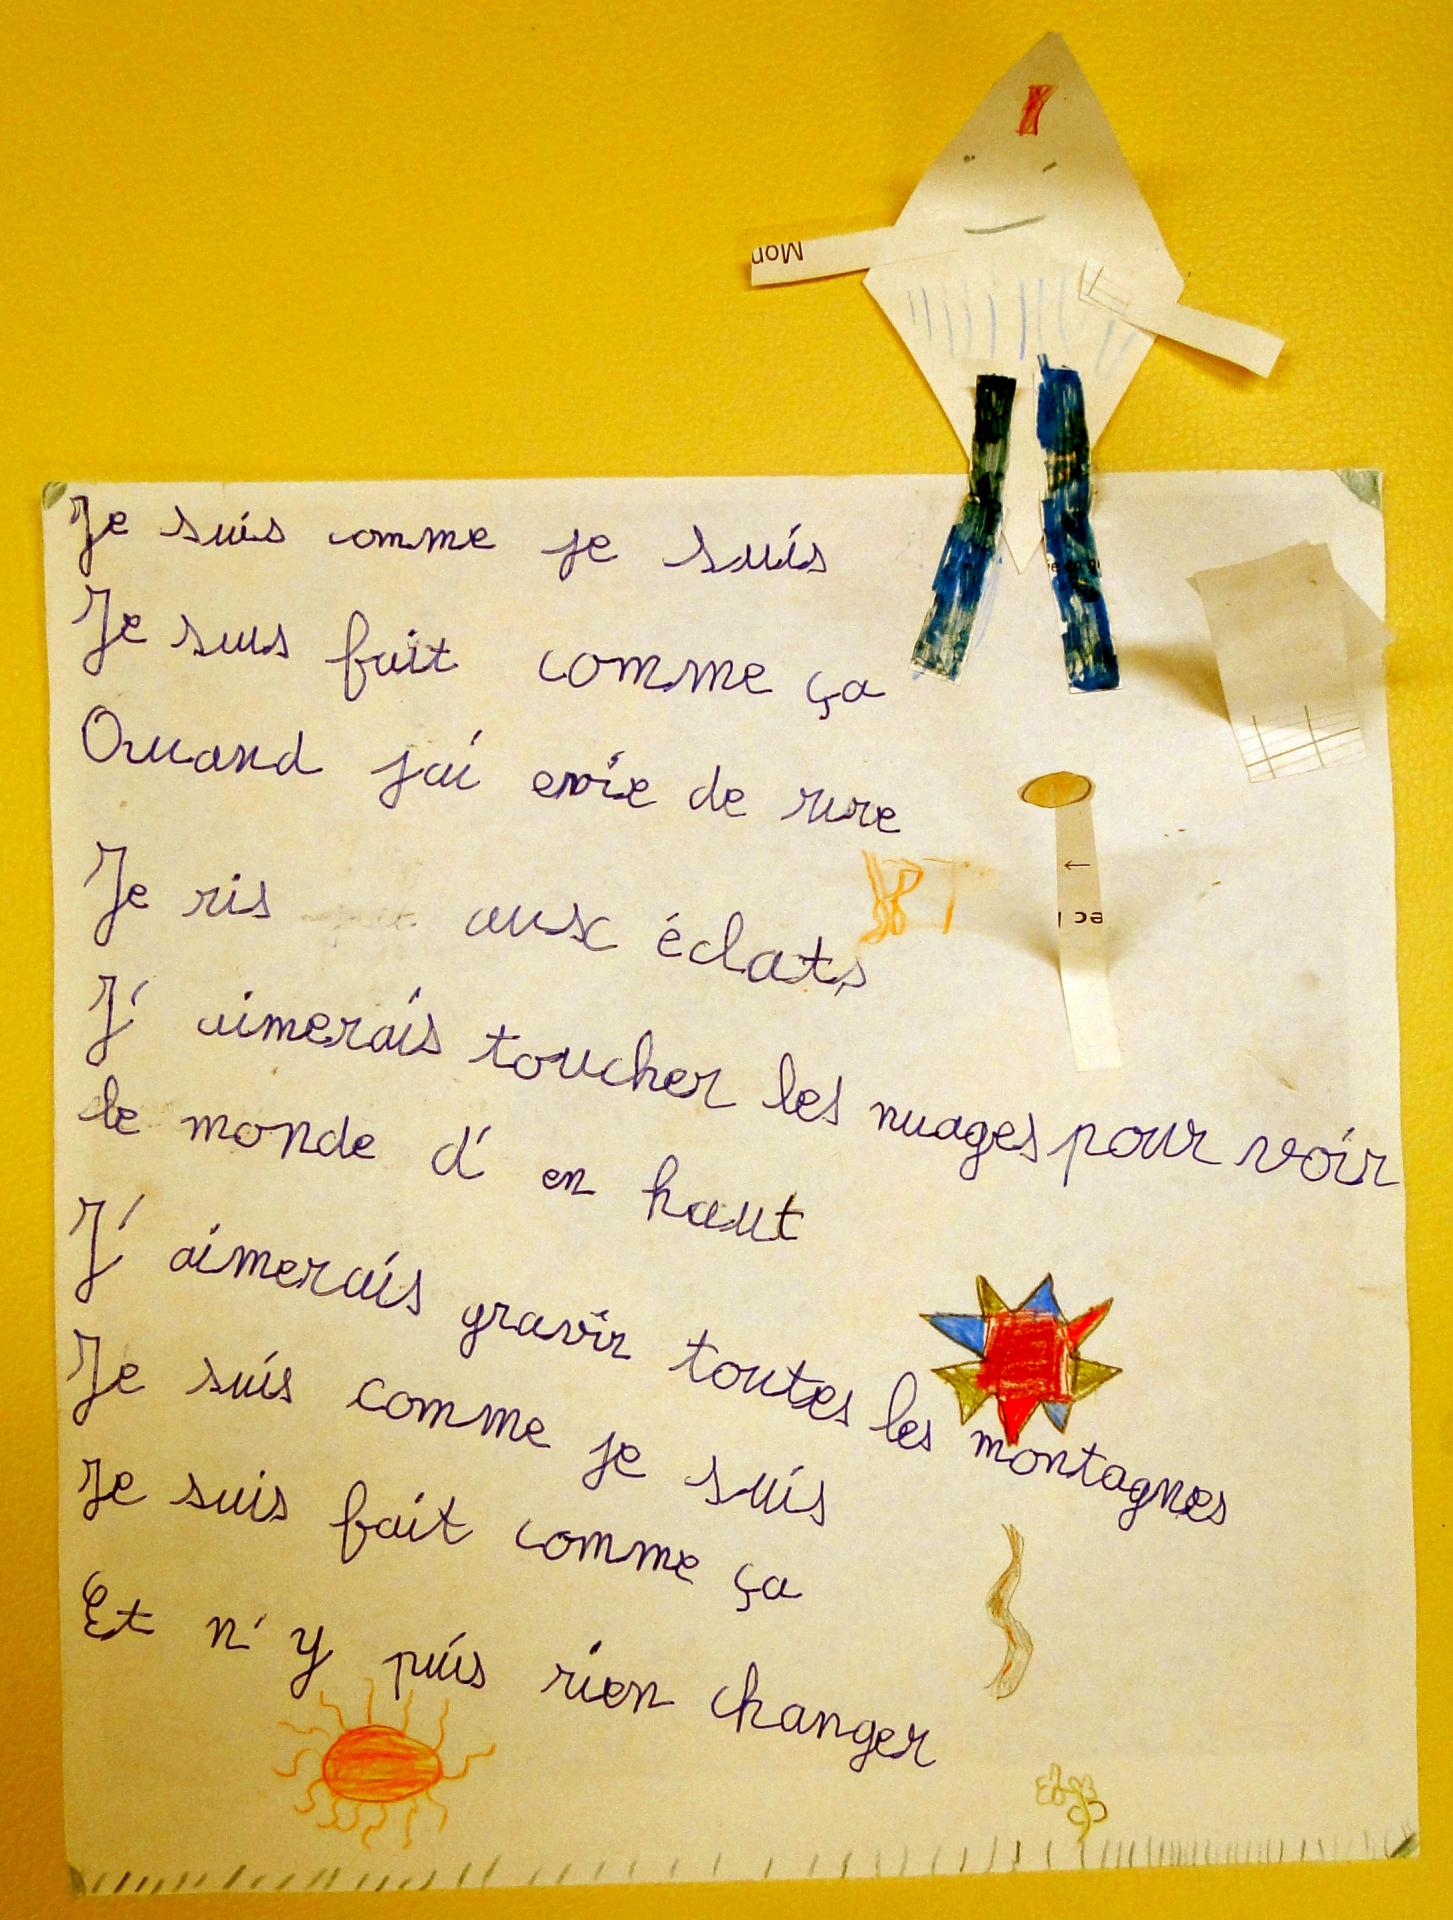 Mon
Je suis comme je suis
Je suis fait comme ça
Quand j'ai envie de rire
Je ris aux éclats
J'aimerais toucher les nuages pour voir
le monde d'en haut
J'aimerais gravir toutes les montagnes
Je suis comme je suis
Je suis fait comme ça
Et n'y puis rien changer
←
ec